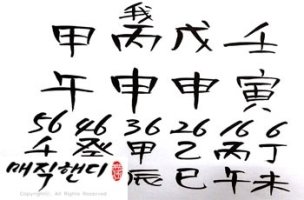 我
甲 丙 戊 壬
午 申 申 寅
56 46 36 26 16 6
壬 癸 甲 乙 丙 丁
매직핸디 辰 巳 午 未
Copyright. All Rights Reserved